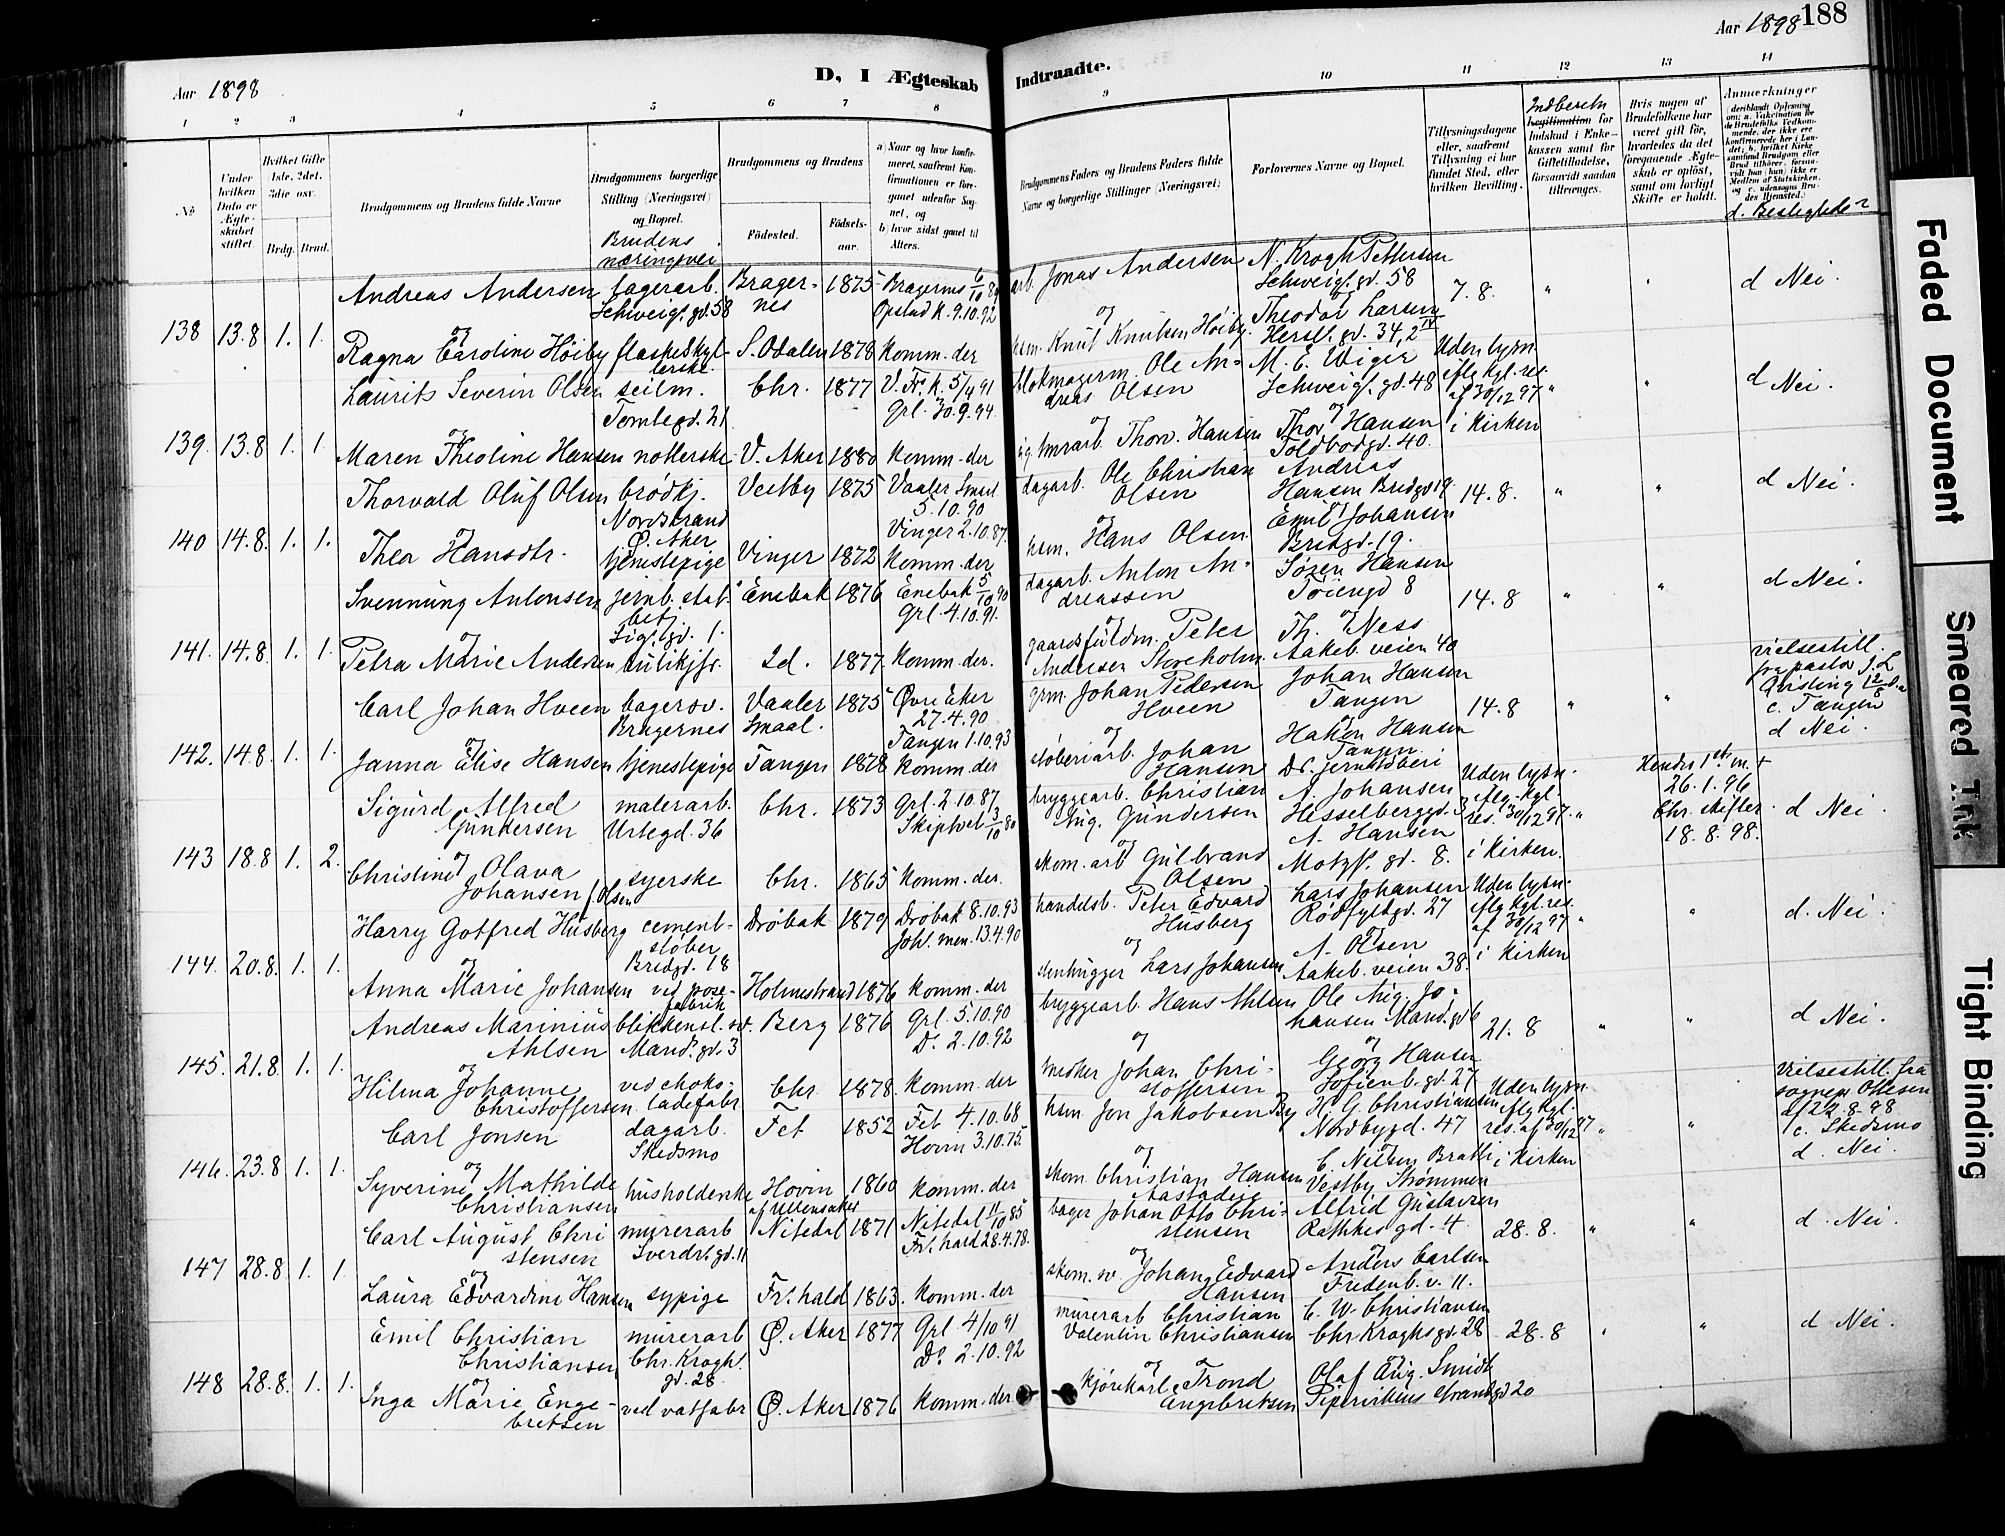 Aar 1898
D, I Ægteskab Indtraadte.
Aar 1898 188
1 2 3 4 5 6 7 8 9 10 11 12 13 14
№
Under hvilken Dato er Ægteskabet stiftet.
Hvilket Gifte (1ste, 2det, 3die osv.
Brdg. Brud.
Brudgommens og Brudens fulde Navne
Brudgommens borgerlige Stilling (Næringsvei) og Bopæl.
Brudens næringsvei
Brudgommens og Brudens
Födested. Födselsaar.
a) Naar og hvor konfirmeret, saafremt Konfirmationen er foregaaet udenfor Sognet, og
b) hvor sidst gaaet til Alters.
Brudgommens Faders og Brudens Faders fulde Navne og borgerlige Stillinger (Næringsvei)
Forlovernes Navne og Bopæl.
Tillysningsdagene eller, saafremt Tillysning ei har fundet Sted, efter hvilken Bevilling.
Indberetn
Legitimation for Indskud i Enkekassen samt for Giftetilladelse, forsaavidt saadan tiltrænges.
Hvis nogen af Brudefolkene har været gift før, hvorledes da det foregaaende Ægteskab er opløst, samt om lovligt Skifte er holdt.
Anmærkninger
d. Beslegtede?
138 13.8 1. 1.
Andreas Andersen lagerarb. Schweig. gd. 58 Bragernes 1875 Bragernes Opstad K. 9.10.92
arb. Jonas Andersen N. Krogh Pettersen Schweig. gd. 58 7.8. " d Nei.
og
Ragna Caroline Höiby flaskeskyllerske S. Odalen 1878 Komm. der
hsm. Knut Knutsen Höiby Theodor Larsen Hersl. gd. 34,2
139. 13.8 1. 1.
Laurits Severin Olsen seilm. Tomtegd. 21 Chr. 1877 V. Fr. K. 5/4 91 Grl. 30.9.94.
blokmagerm. Ole Andreas Olsen M. E. Wiger Schweig. gd. 48 Uden lysn. iflg kgl. res. af 30/12 97 " d Nei.
og
Maren Theoline Hansen notterske V. Aker 1880 Komm. der
Thorv. Hansen Thor Hansen Toldbodgd. 40. i Kirken
140 14.8. 1. 1.
Thorvald Oluf Olsen brödkj. Nordstrand Ø. Aker Vestby 1875 Vaaler Smaal 5.10.90
dagarb. Ole Christian Olsen Andreas Hansen Bredgd 19 14.8. " d Nei.
Thea Hansdtr. tjenestepige Vinger 1872 Vinger 2.10.87. Komm. der
hsm. Hans Olsen Emil Johansen Bredgd. 19.
141. 14.8. 1. 1.
Svennung Antonsen jernb. stat. betj. Sig. gd. 1. Enebak 1876 Enebak 5/10 90 Grl. 4.10.91.
dagarb. Anton Andreassen Sören Hansen Töiengd 8 14.8 " d Nei.
og
Petra Marie Andersen butikjfr. Id. 1877. Komm. der.
gaardsfuldm. Peter Andersen Storeholm Th. Næss Aakeb. veien 40
142. 14.8. 1. 1.
Carl Johan Hveen bagersv. Bragernes Vaaler Smaal. 1875 Øvre Eker 27.4.90
grm. Johan Pedersen Hveen Johan Hansen Tangen 14.8 "
vielsestill. fra pastor J. L. Qvisling 12/8 c. Tangen d Nei.
og
Janna Elise Hansen tjenestepige Tangen 1878 Tangen 1.10.93 Komm. der
støberiarb. Johan Hansen Hakon Hansen Tangen Dr. jernstöberi
143 18.8 1. 2.
Sigurd Alfred Gundersen malerarb. Urtegd. 36 Chr. 1873 Grl. 2.10.87
bryggearb. Christian Aug. Gundersen A. Johansen Hesselberggd. 3 Uden lysn. iflg. kgl. res. 30/12 97. " Hendes 1ste m. + 26.1.96 Chr. skifter. 18.8.98. d Nei
og
Christine Olava Johansen f. Olsen syerske Chr. 1865 Skiptvet 3/10 80 Komm. der.
skom. arb Gulbrand Olsen A. Hansen Motzf. gd. 8. i Kirken.
144. 20.8. 1. 1.
Harry Gotfred Husberg cementstöber Bredgd. 18 Dröbak 1879 Dröbak 8.10.93 Joh. men. 13.4.90
handelsb. Peter Edvard Husberg Lars Johansen Rödfyldgd. 27 Uden lysn. iflg kgl. res. af 30/12 97 " d. Nei.
og
Anna Marie Johansen ved posefabrik Holmestrand 1876 Komm. der
stenhugger Lars Johansen A. Olsen Aakeb. veien 38. i Kirken
145. 21.8. 1. 1.
Andreas Marinius Ahlsen blikkensl. sv. Mand. gd. 3 Berg 1876 Grl. 5.10.90 Do. 2.10.92
bryggearb. Hans Ahlsen Ole Aug. Johansen Mand. gd 6 21.8 " d Nei.
og
Hilma Johanne Christoffersen ved chokoladefabr Chr. 1878. Komm. der
snedker Johan Christoffersen Georg Hansen Sofienb. gd. 27
146. 23.8 1. 1.
Carl Jonsen dagarb. Skedsmo Fet 1852 Fet 4.10.68 Hovin 3.10.75
hsm Jon Jakobsen By H. G. Christiansen Nordbygd. 47 Uden lysn iflg kgl. res. af 30/12 97 "
Vielsestill. fra sognepr. Ottesen d/22.8.98 c. Skedsmo d. Nei.
og
Syverine Mathilde Christiansen husholderske Hovin af Ullensaker 1860 Komm. der
skom. Christian Hansen Aastaden C. Nilsen Brath Vestby Strømmen i Kirken
147 28.8 1. 1.
Carl August Christensen murerarb Sverdr. gd. 11 Nitedal 1871 Nitedal 11/10 85
bager Johan Otto Christensen Alfrid Gustavsen Rathkes gd. 4 28.8. " d. Nei.
og
Laura Edvardine Hansen sypige Fr. hald 1863. Fr. hald 28.4.78. Komm. der
skom. sv Johan Edvard Hansen Anders Carlsen Fredenb. v. 11.
148 28.8. 1. 1.
Emil Christian Christiansen murerarb Chr. Krogh. gd. 28 Ø. Aker 1877 Grl. 4/10 91 Do. 2.10.92
murerarb Christian Valentin Christiansen C. W. Christiansen Chr Kroghs gd. 28 28.8 " d Nei.
og
Inga Marie Engebretsen ved vatfabr Ø. Aker 1876 Komm. der
kjörekarl Trond Engebretsen Olaf Aug. Smidt Pipervikens Strandgd 20
Faded Document
Smeared Ink
Tight Binding